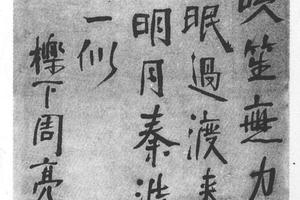 笙無力
眠過渡来
明月秦淮
一似
櫟下周亮